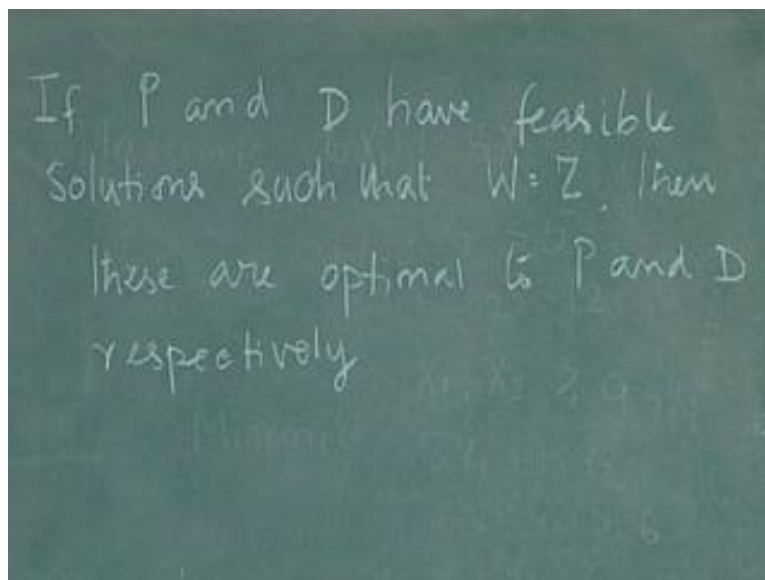 If P and D have feasible
Solutions such that W = Z, then
these are optimal to P and D
respectively